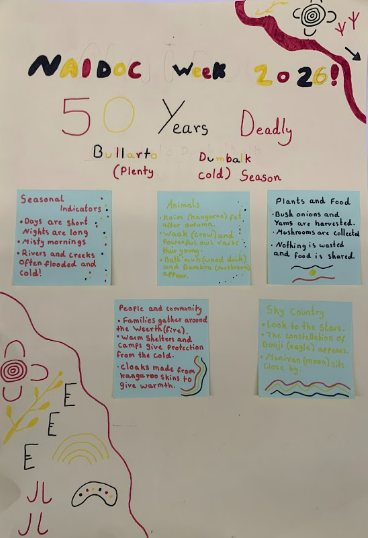 NAIDOC Week 2026!
50 Years Deadly
Bullarto Dumbalk
(Plenty cold) Season
Seasonal
Indicators
• Days are short
Nights are long
• Misty mornings
• Rivers and creeks
often flooded and
cold!
Animals
• (kangaroo) fat
after autumn.
• (crow) and
Powerful owl raise
their young.
• (wood duck)
and
appear.
Plants and Food
• Bush onions and
Yams are harvested.
• Mushrooms are collected
• Nothing is wasted
and food is shared.
People and community
• Families gather around
the Weerth (fire).
• Warm shelters and
camps give protection
from the cold.
• cloaks made from
kangaroo skins to
give warmth.
Sky Country
• Look to the stars.
• The constellation of
Bunji (eagle) appears.
• (moon) sits
close by.